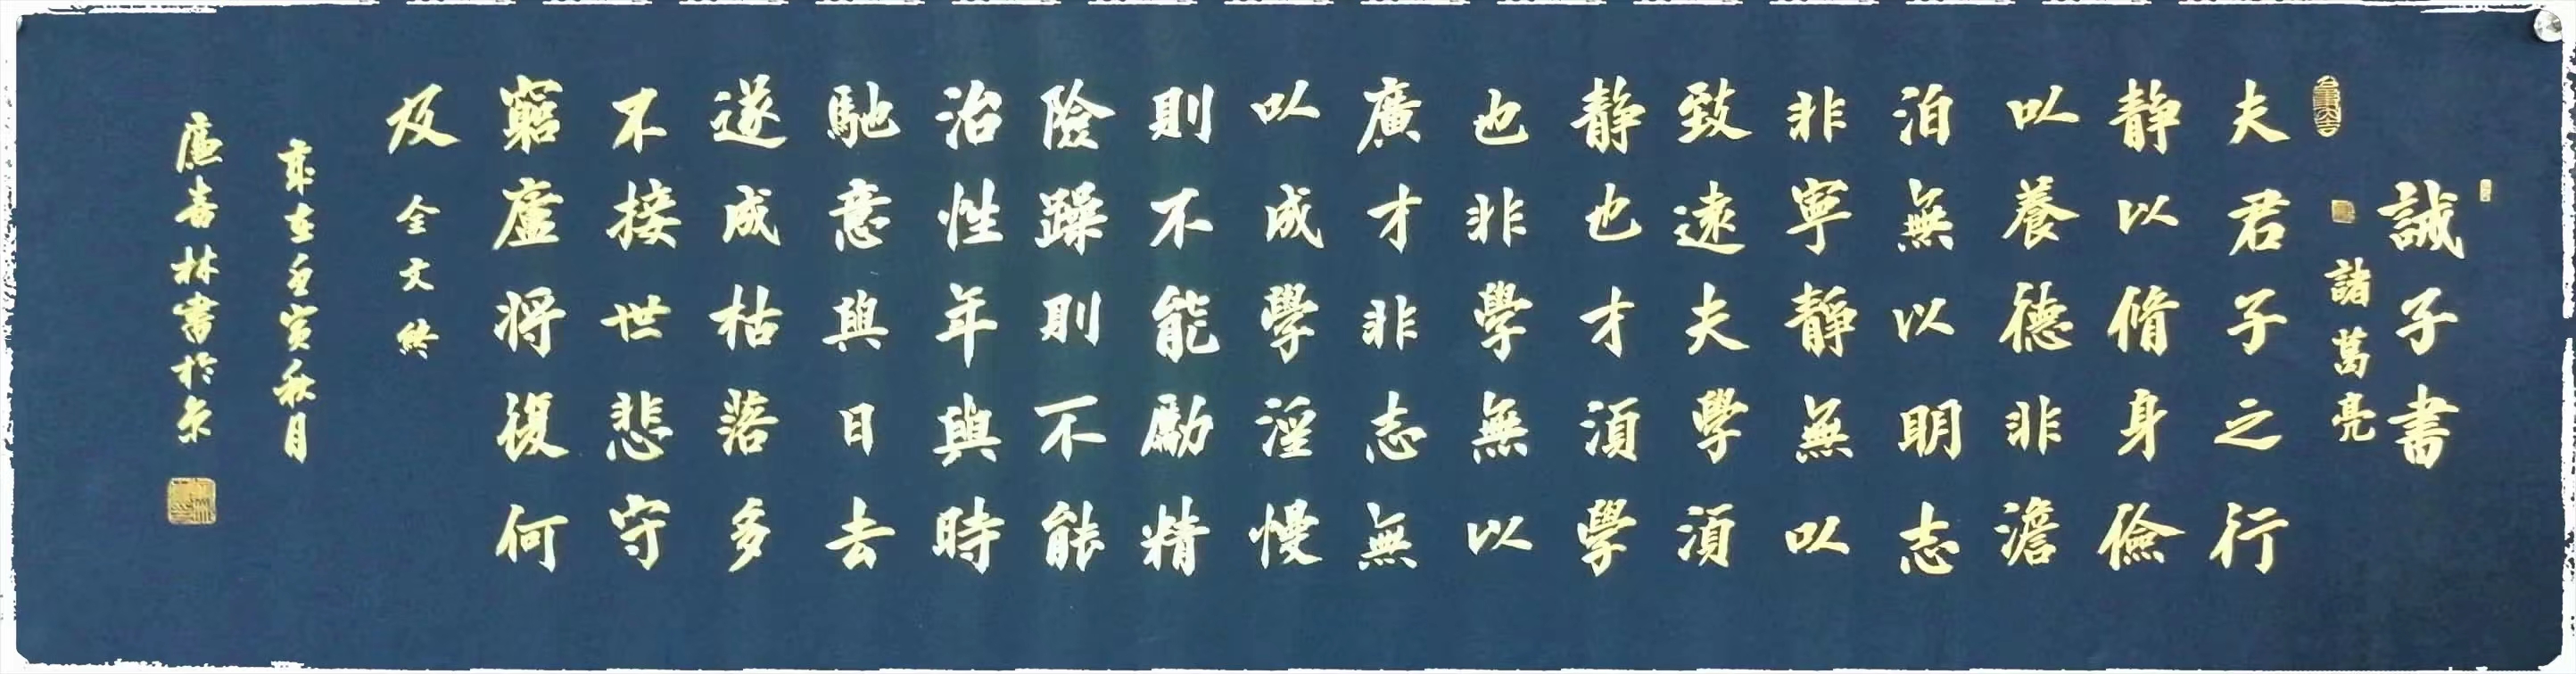 誡子書
諸葛亮
夫君子之行
靜以脩身儉
以養德非澹
泊無以明志
非寧靜無以
致遠夫學須
靜也才須學
也非學無以
廣才非志無
以成學淫慢
則不能勵精
險躁則不能
治性年與時
馳意與日去
遂成枯落多
不接世悲守
窮廬將復何
及 全文終
歲在壬寅秋月
林書於京